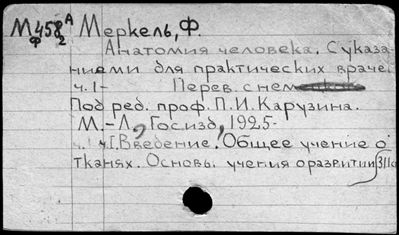 М458 А Меркель, Ф.
Ф 2
Анатомия человека. С указа-
ниями для практических враче
ч. I- Перев. с нем
Под ред. проф. П.И. Карузина.
М.-Л., Госизд, 1925-
ч. I Введение. Общее учение о
тканях. Основы учения о развитии